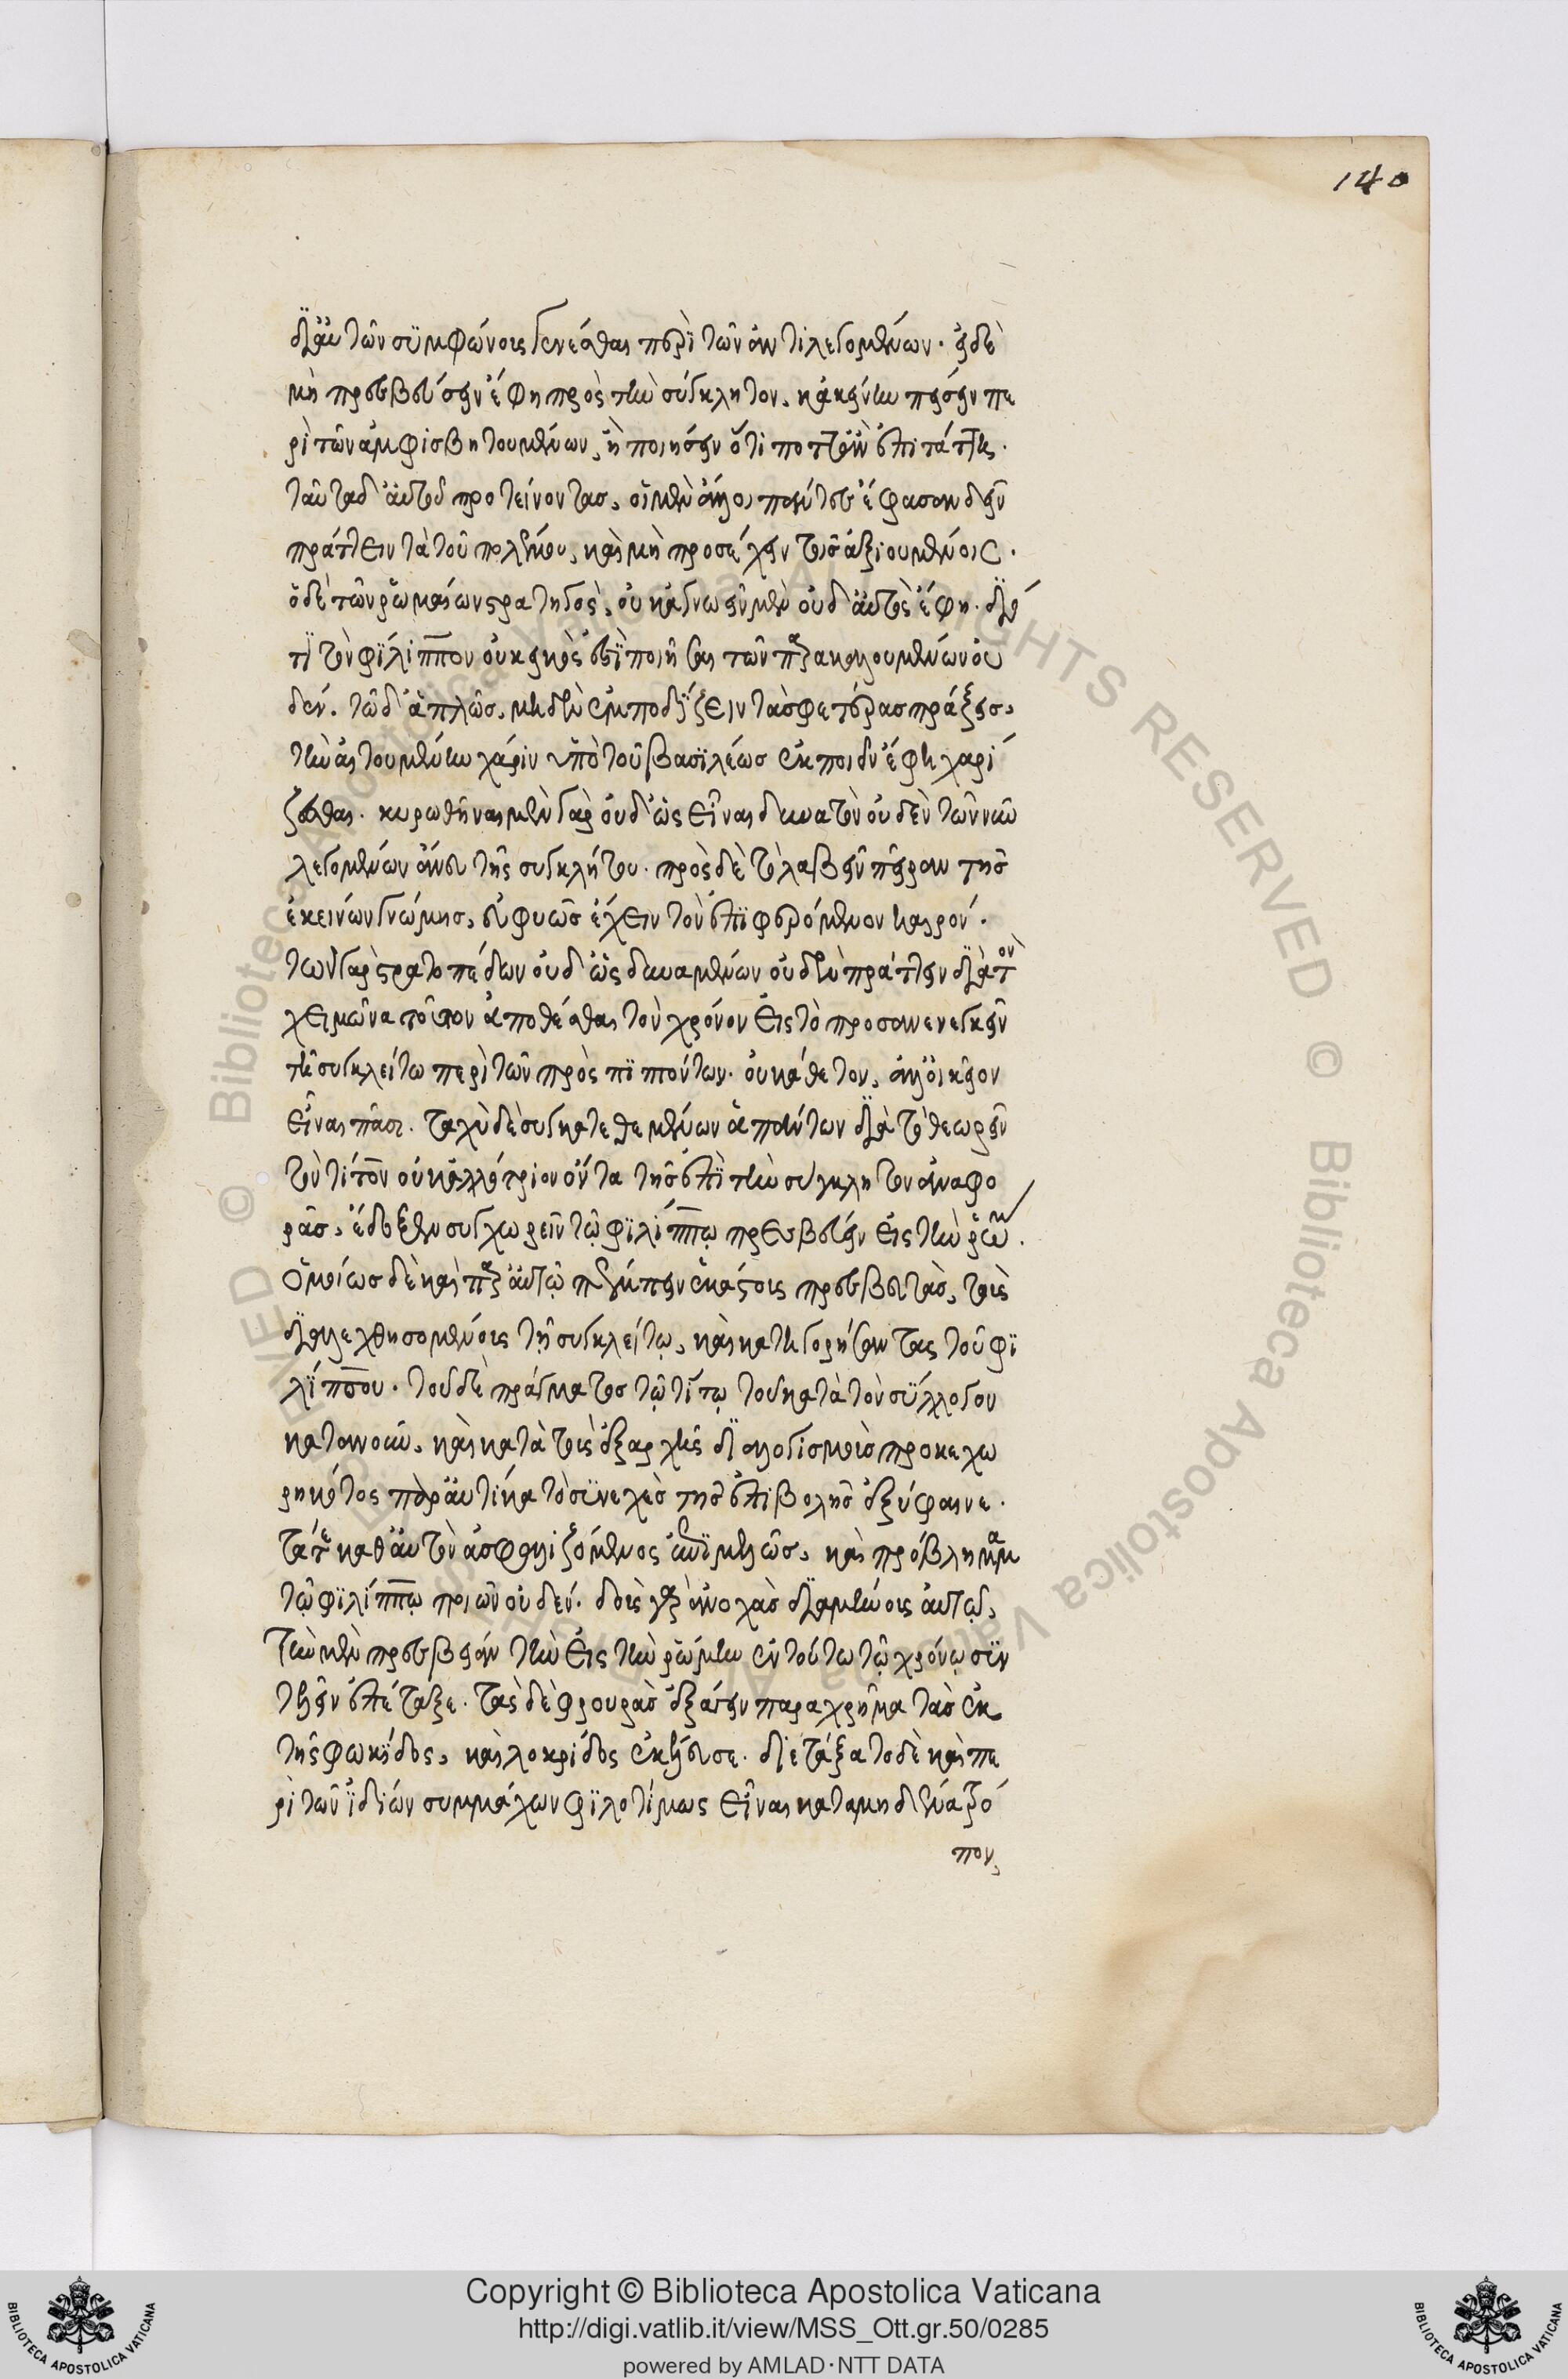 διαὐτῶν συμφώνοις γενέσθαι περὶ τῶν ἀντιλεγομένων. εἰ δὲ
μὴ πρεσβεύσειν ἔφη πρὸς τὴν σύγκλητον, κἀκείνην πείσειν πε
ρὶ τῶν ἀμφισβητουμένων, ἢ ποιήσειν ὅτι ποτ' ἂν ἐπιτάττη.
ταῦτα δ' αὐτοῦ προτείνοντασ, οἱ μὲν ἄλλοι πάντες ἔφασαν δεῖν
πράττειν τὰ τοῦ πολέμου, καὶ μὴ προσέχειν τοῖσ ἀξιουμένοις.
ὁ δὲ τῶν ῥωμαίων στρατηγὸς, οὐκ ἀγνωεῖν μὲν οὐδ' αὐτὸς ἔφη. διό
τι τὸν φίλιππον οὐκ εἰκὸς ἐστὶ ποιῆσαι τῶν παρακαλουμένων οὐ
δέν. τῶ δ' ἁπλῶσ, μηδὲν ἐμποδίζειν τὰσ φετέρασ πράξεισ,
τὴν αἰτουμένην χάριν ὑπὸ τοῦ βασιλέωσ ἐκποιεῖν ἔφη χαρί
ζεσθαι. κυρωθῆναι μὲν γὰρ οὐδ' ὡς εἶναι δυνατὸν οὐδὲν τῶν νῦν
λεγομένων ἄνευ τῆς συγκλήτου. πρὸς δὲ τὸ λαβεῖν πεῖραν τῆσ
ἐκεινων γνώμησ, εὐφυῶσ ἔχειν τὸν ἐπιφερόμενον καιρόν.
τῶν γὰρ στρατοπέδων οὐδ' ὡς δυναμένων οὐδὲν πράττειν διὰ τὸν
χειμῶνα τοῦτον ἀποθέσθαι τὸν χρόνον εἰς τὸ προσανενεγκεῖν
τῆ συγκλείτω περὶ τῶν πρὸς πιπτόντων. οὐκ ἄθετον, ἀλλ' οἰκεῖον
εἶναι πᾶσι. ταχὺ δὲ συγκατεθεμένων ἁπάντων διὰ τὸ θεωρεῖν
τὸν τίτον οὐκ ἀλλότριον ὄντα τῆσ ἐπὶ τὴν σύγκλητον ἀναφο
ρᾶσ, ἔδοξεν συγχωρεῖν τῷ φιλίππῳ πρεσβεύειν εἰς τὴν ῥώμην.
ὁμοίωσ δὲ καὶ παρ' αὐτῷ πέμπειν ἑκάστοις πρεσβευτὰσ, τοὶς
διαλεχθησομένοις τῇ συγκλείτῳ, καὶ κατηγορήσαντας τοῦ φι
λίππου. τοῦ δὲ πράγματοσ τῷ τίτῳ τοῦ κατὰ τὸν σύλλογον
κατανοῦν, καὶ κατὰ τοὶς ἐξαρχῆς διαλογισμοὶσ προκεχω
ρηκότος παραυτίκα τὸ συνεχὲσ τῆσ ἐπιβολῆσ ἐξύφαινε.
τά τε καθ' αὑτὸν ἀσφαλιζόμενος ἐπιμελῶσ, καὶ πρόβλημαμ
τῷ φιλίππῳ ποιῶν οὐδέν. δοὶς γὰρ ἀνοχὰσ διαμένοις αὐτῷ,
τὴν μὲν πρεσβείαν τὴν εἰς τὴν ῥώμην ἐν τούτω τῷ χρόνῳ συν
τελεῖν ἐπέταξε. τὰς δὲ φρουρὰσ ἐξάγειν παραχρῆμα τὰσ ἐκ
τῆς φωκίδος, καὶ λοκρίδος ἐκέλευσε. διετάξατο δὲ καὶ πε
ρὶ τῶν ἰδιών συμμάχων φιλοτίμως εἶναι καταμηδένα τρό
πον,
140
Copyright © Biblioteca Apostolica Vaticana
http://digi.vatlib.it/view/MSS_Ott.gr.50/0285
powered by AMLAD·NTT DATA